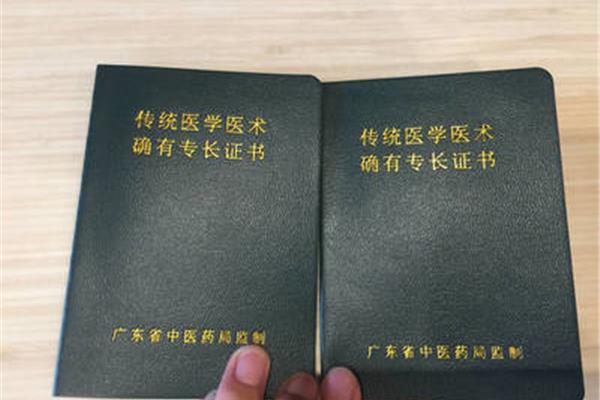 传统医学医术
确有专长证书
广东省中医药局监制
传统医学医术
确有专长证书
广东省中医药局监制